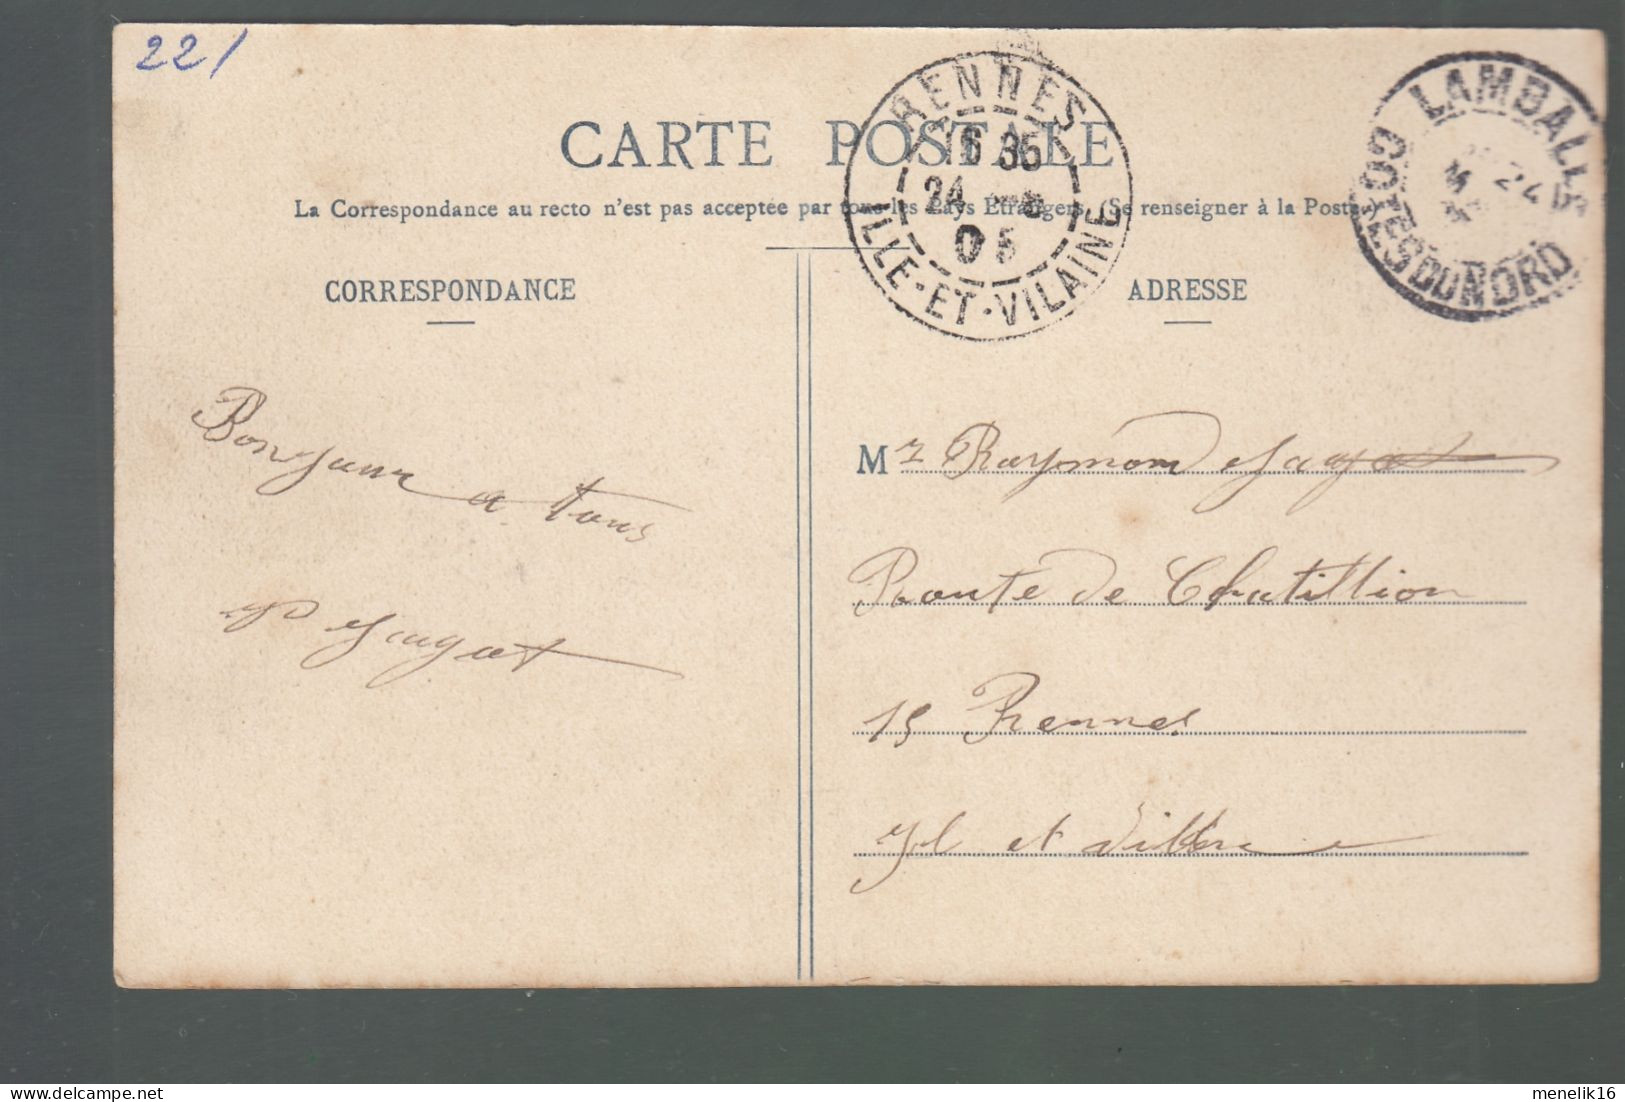 22/
CARTE POSTALE
La Correspondance au recto n'est pas acceptée par tous les Pays Étrangers. (Se renseigner à la Poste
RENNES
6 35
24
05
ILLE-ET-VILAINE
LAMBALLE
24
COTES DU NORD
CORRESPONDANCE
ADRESSE
Bonjour a tous
Mr Raymon
Route de Chatillion
15 Rennes
Il et Villene
menelik16